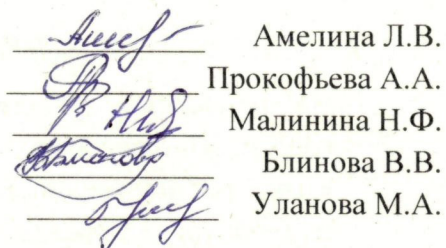 Амелина Л.В.
Прокофьева А.А.
Малинина Н.Ф.
Блинова В.В.
Уланова М.А.